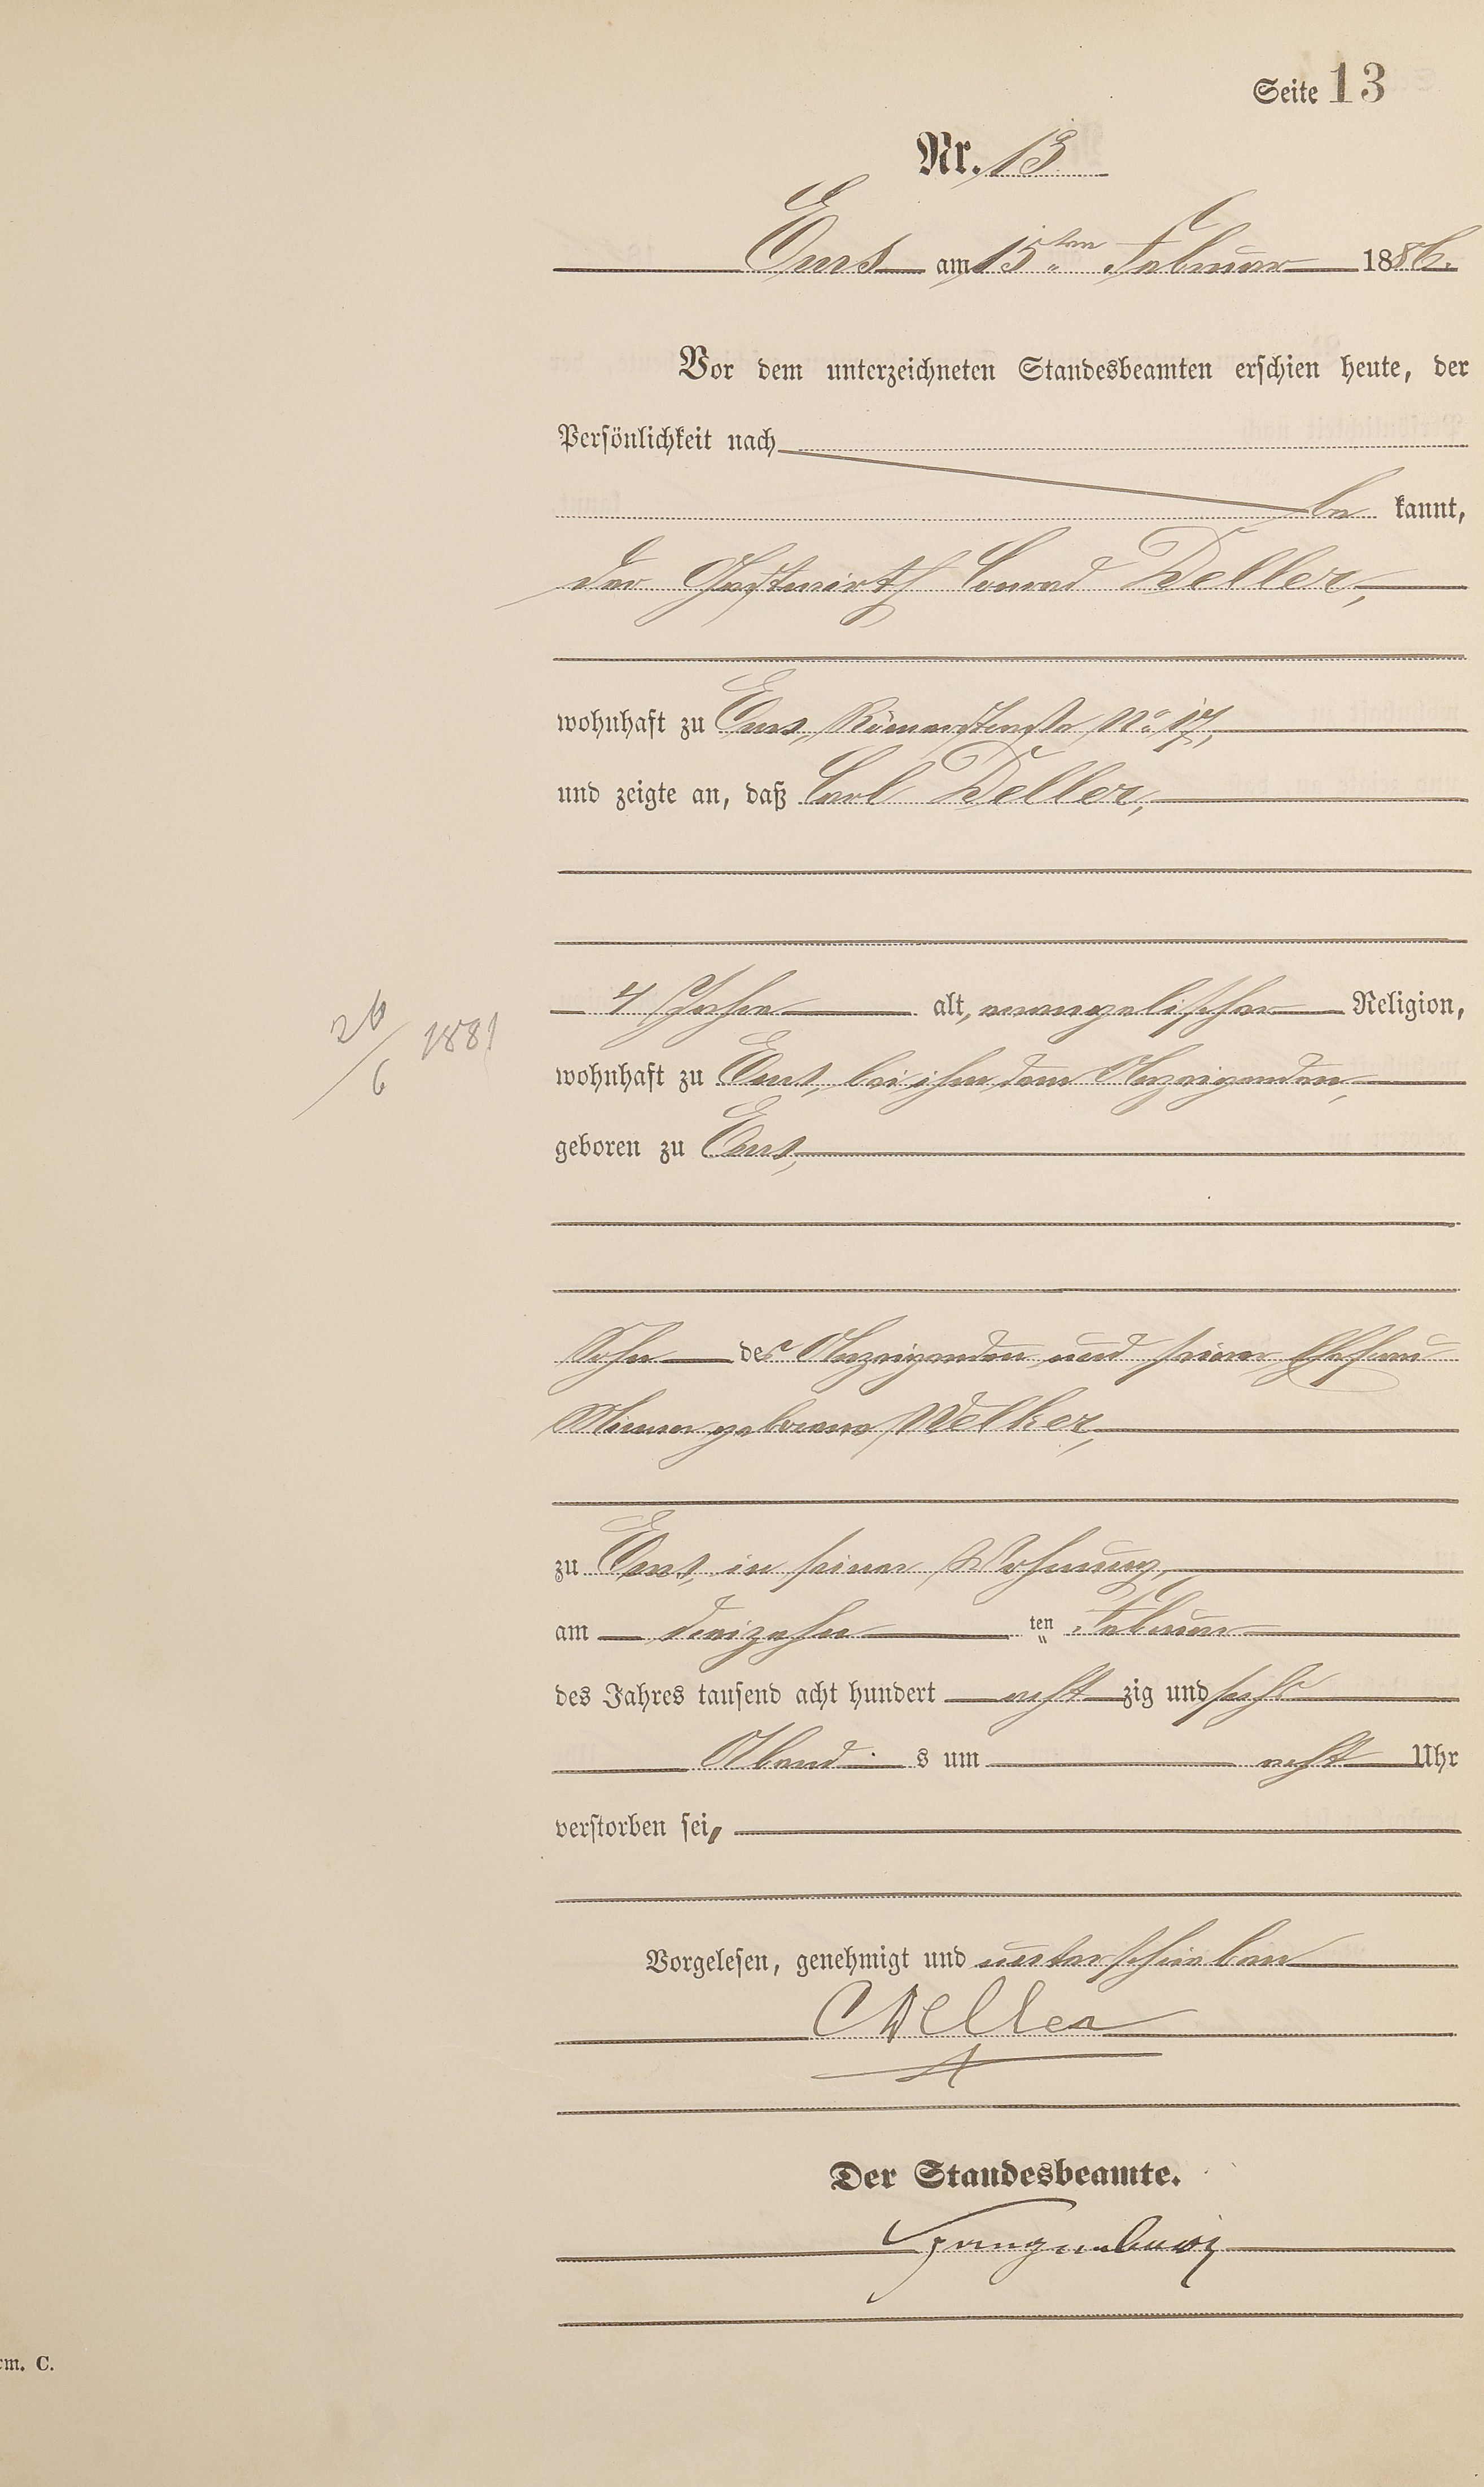 Seite 13
Nr. 13
Ems am 15ten Februar 1886.
Vor dem unterzeichneten Standesbeamten erschien heute, der
Persönlichkeit nach
be kannt,
der Gastwirth Conrad Deller,
wohnhaft zu Ems, Römerstraße No 17,
und zeigte an, daß Carl Deller,
4 Jahre alt, evangelischer Religion,
26/6 1881
wohnhaft zu Ems, bei ihm dem Anzeigenden,
geboren zu Ems,
Sohn des Anzeigenden und seiner Ehefrau
Minna geborene Welker,
zu Ems, in seiner Wohnung,
am dreizehn ten Februar
des Jahres tausend acht hundert acht zig und sechs
Abend s um acht Uhr
verstorben sei,
Vorgelesen, genehmigt und unterschrieben
C Deller
Der Standesbeamte.
Spangenberg
rm. C.